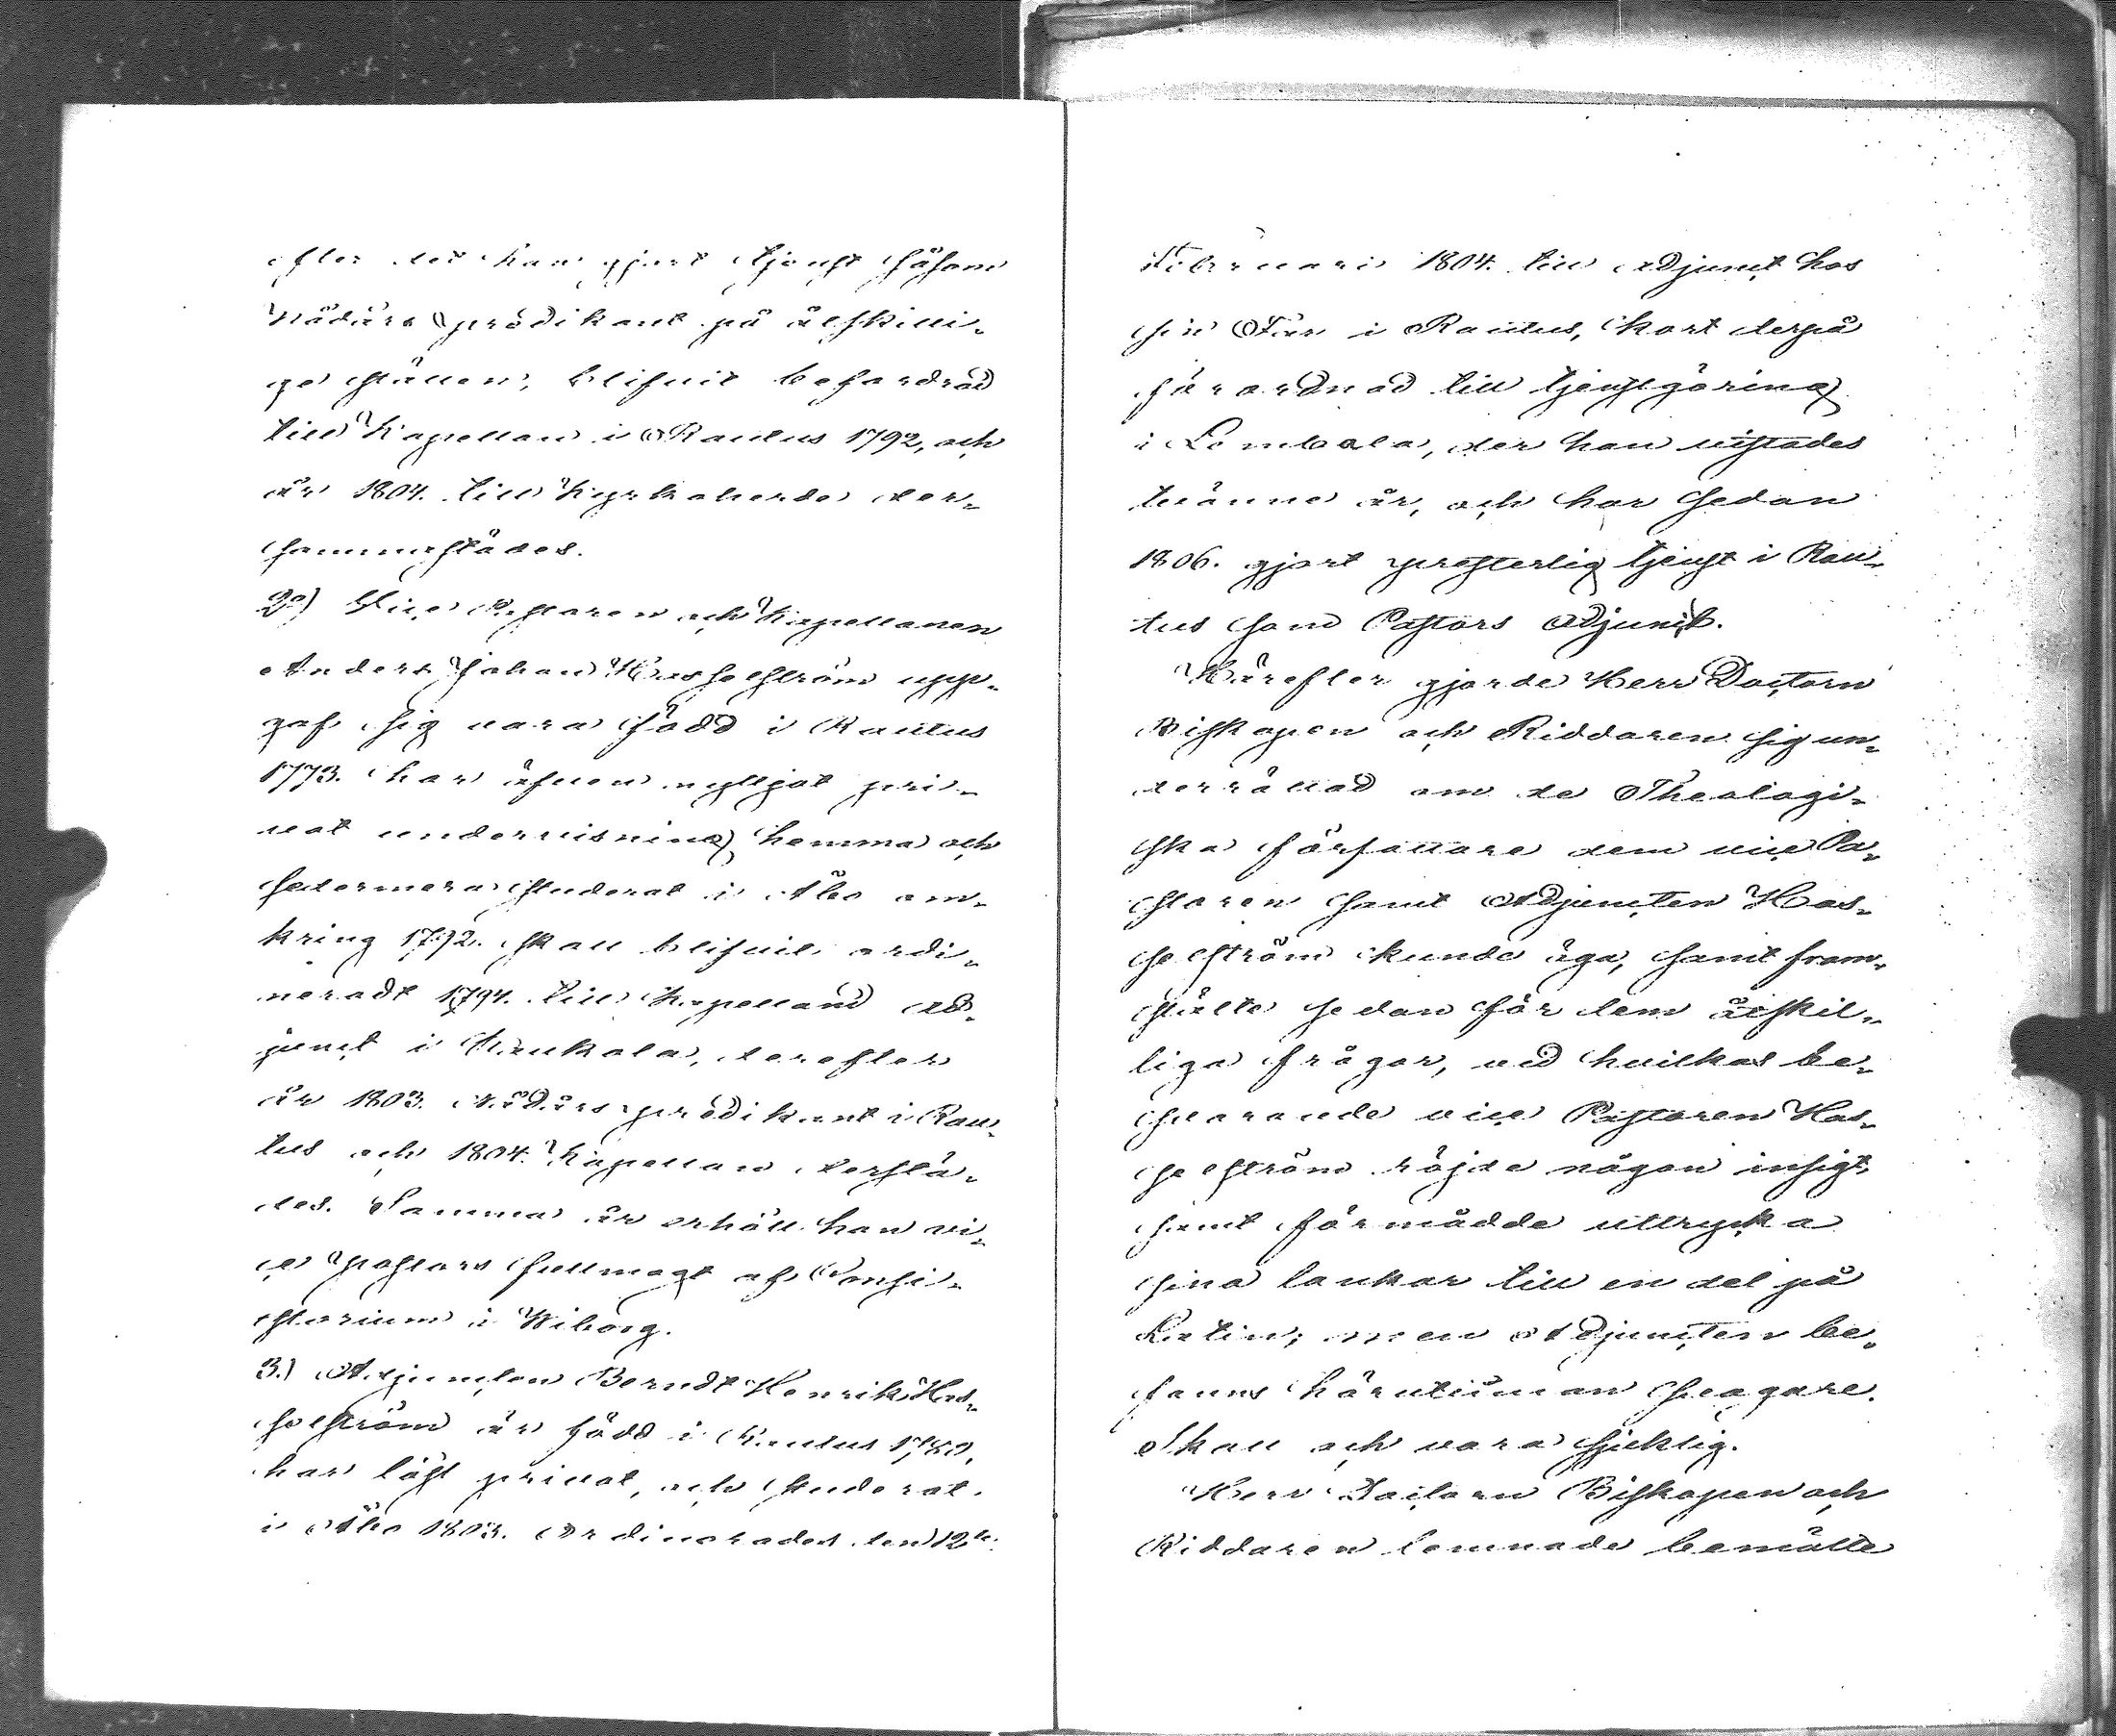 efter det han gjort tjenst såsom
Nådårs predikant på åtskilli-
ga ställen, blifvit befordrad
till Kapellan i Rautus 1792, och
år 1804. till Kyrkoherde der-
sammastädes.
2o) Vice Pastoren och Kapellanen
Anders Johan Hasselström upp-
gaf sig vara född i Rautus
1773. har äfven nyttjat pri-
vat undervisning hemma och
sedermera studerat i Åbo om-
kring 1792. skall blifvit ordi-
neradt 1794. till Kapellans Ad-
junct i Kaukola, derefter
år 1803. Nådårs predikant i Rau-
tus och 1804. Kapellan derstä-
des. Samma år erhöll han vi-
ce Pastors fullmagt af Consi-
storium i Wiborg.
3.) Adjuncten Berndt Henrik Has-
selström är född i Rautus
har läst privat, och studerat
i Åbo 1803. Ordinerades den 12te
Februari 1804. till Adjunct hos
sin Far i Rautus, kort derpå
förordnad till tjenstgöring
i Lembala, der han vistades
tvänne år, och har sedan
1806. gjort presterlig tjenst i Rau-
tus som Pastors Adjunct.
Härefter gjorde Herr Doctorn
Biskopen och Riddaren sig un-
derrättad om de Theologi-
ska författare dem vice Pa-
storen samt Adjuncten Has-
selström kunde äga, samt fram-
stälte sedan för dem åtskil-
liga frågor, vid hvilkas be-
svarande vice Pastoren Has-
selström röjde någon insigt
samt förmådde uttrycka
sina tankar till en del på
Latin; men Adjuncten be-
fanns härutinnan svagare.
Skall och vara sjuklig.
Herr Doctorn Biskopen och
Riddaren lemnade bemälte